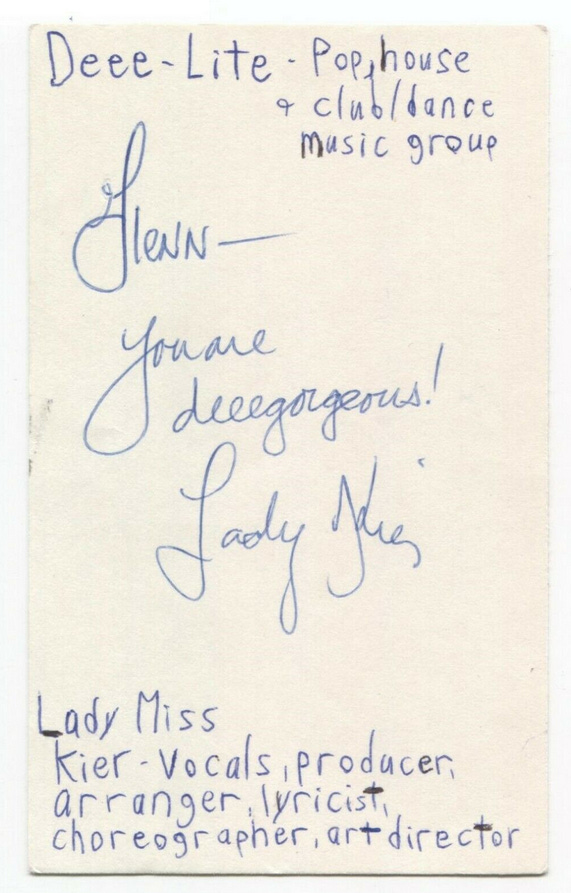 Deee-Lite - Pop, house
& club/dance
music group
Glenn—
you are
deeegorgeous!
Lady Kier
Lady Miss
Kier - Vocals, producer,
arranger, lyricist,
choreographer, art director